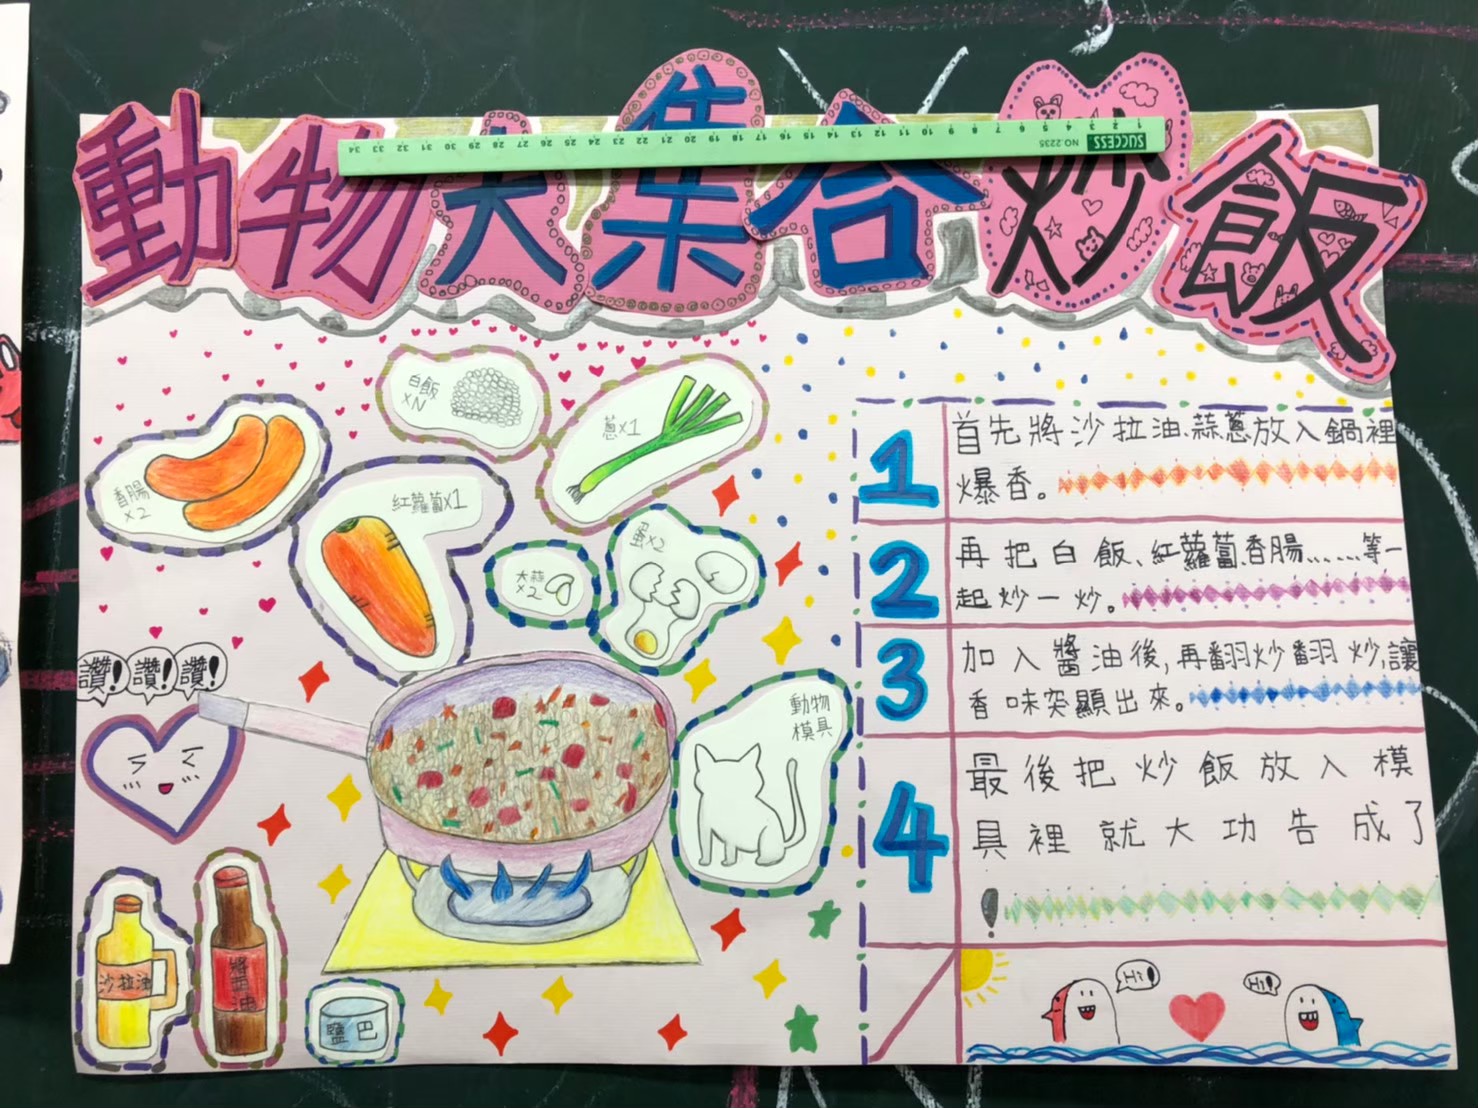 動物大集合炒飯
SUCCESS
NO.2235
1 2 3 4 5 6 7 8 9 10 11 12 13 14 15 16 17 18 19 20 21 22 23 24 25 26 27 28 29 30 31 32 33 34
白飯
×N
蔥×1
香腸
×2
紅蘿蔔×1
大蒜
×2
蛋×2
讚!讚!讚!
動物
模具
沙拉油
醬油
鹽巴
1
首先將沙拉油、蒜蔥放入鍋裡
爆香。
2
再把白飯、紅蘿蔔、香腸……等一
起炒一炒。
3
加入醬油後,再翻炒翻炒,讓
香味突顯出來。
4
最後把炒飯放入模
具裡就大功告成了
!